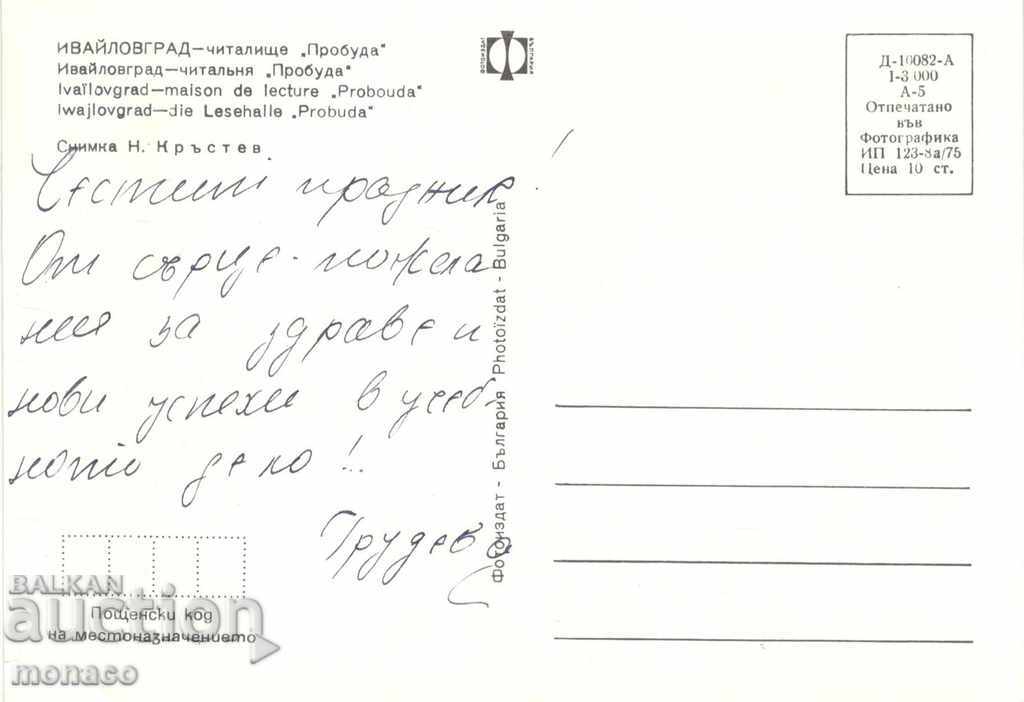 ИВАЙЛОВГРАД—читалище „Пробуда“
Ивайловград—читальня „Пробуда“
Ivaïlovgrad—maison de lecture „Probouda“
Iwajlovgrad—die Lesehalle „Probuda“
Снимка Н. Кръстев.
ФОТОИЗДАТ
БЪЛГАРИЯ
Д-10082-А
1-3 000
А-5
Отпечатано
във
Фотографика
ИП 123-8а/75
Цена 10 ст.
Честит празник!
От сърце пожела
ния за здраве и
нови успехи в учеб-
ното дело!..
Трудева
Фотоиздат - България Photoïzdat - Bulgaria
Пощенски код
на местоназначението
BALKAN
auction
monaco